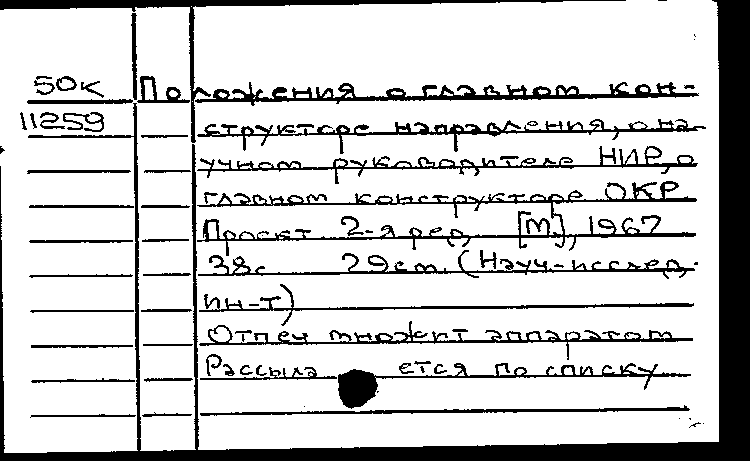 50к Положения о главном кон-
11259 структоре направления, о на-
учном руководителе НИР, о
главном конструкторе ОКР.
Проект 2-я ред. [М.], 1967
38с 29см. (Науч-исслед.
ин-т)
Отпеч множит аппаратом
Рассыла ется по списку